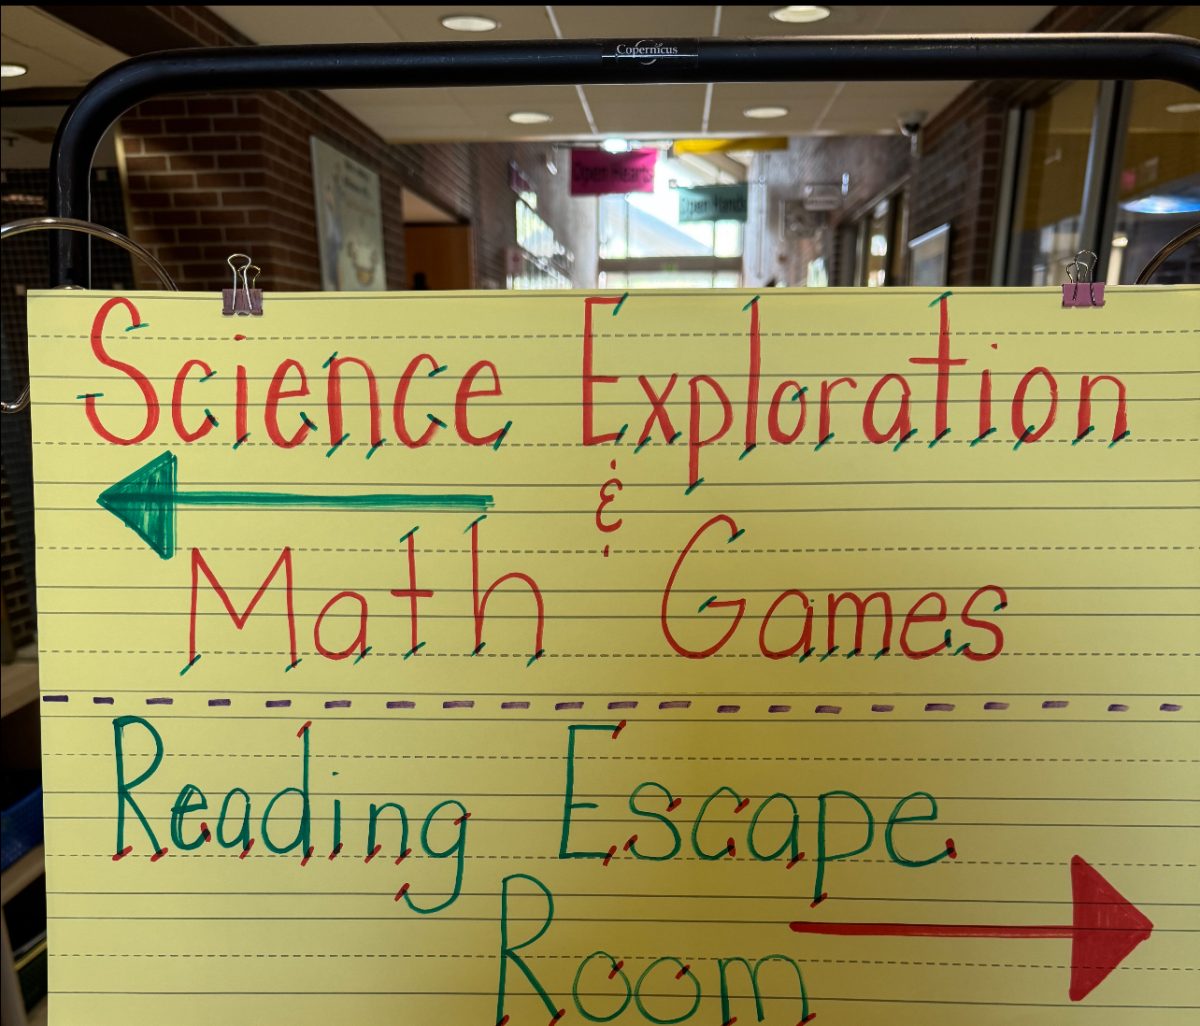 Copernicus
Open Hearts
Open Hands
Science Exploration
&
Math Games
Reading Escape
Room